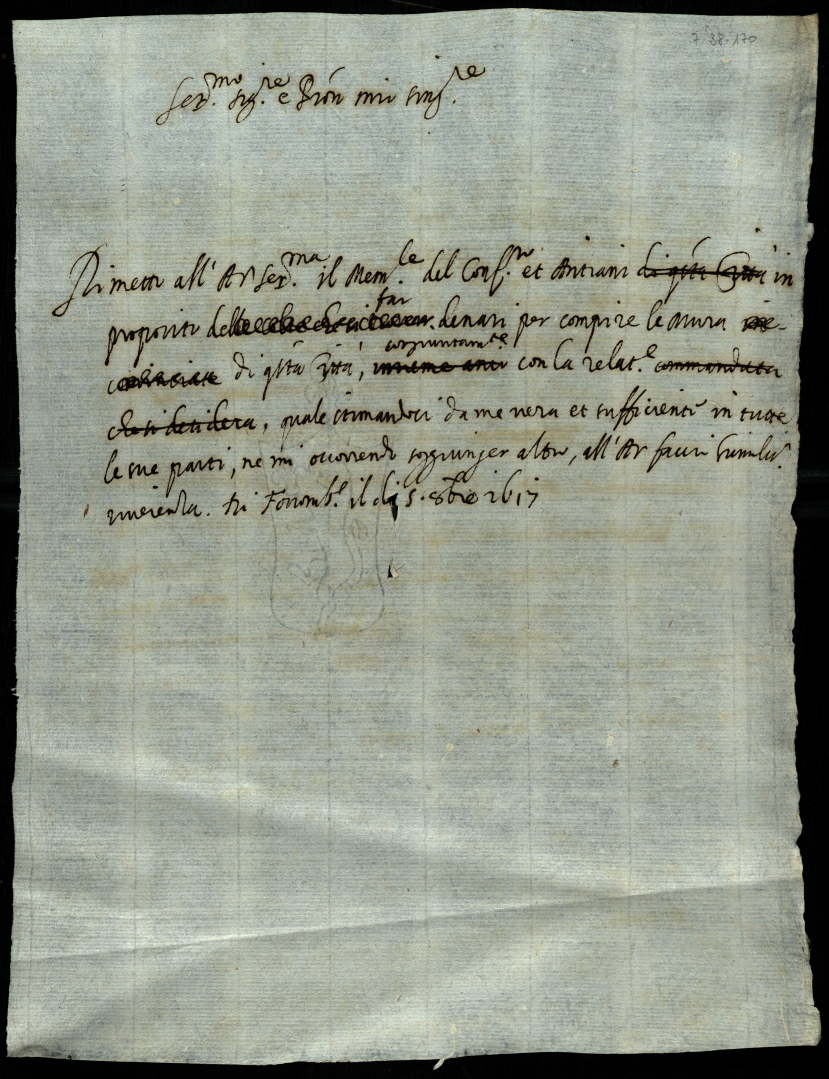 7-38-170
Ser.mo Sig.re e Pron mio sing.re
Rimetto all' A V Ser.ma il Mem.le del Conf.ro et Antiani di qsta Città in
proposito delle far denari per compire le mura in-
cominciate di qsta Città, congiuntamte insieme anco con la relat.e commandata
che si desidera, quale stimandoci da me vera et sufficiente in tutte
le sue parti, ne mi occorrendo soggiunger altro, all' A V faccio humilis.
riverenza. Di Fossomb.e il di 5. 8bre 1617